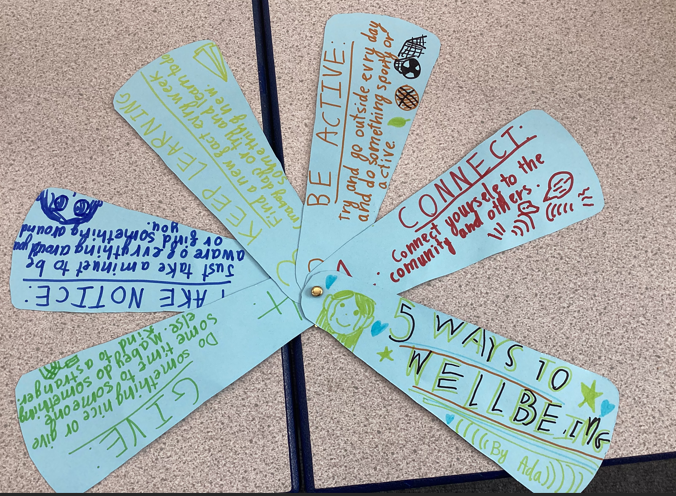 5 WAYS TO
WELLBE,ING
(((((By Ada)))))
1
CONNECT:
Connect yourself to the
comunity and others.
BE ACTIVE:
try and go outside evry day
and do something sporty or
active.
KEEP LEARNING
Find a new fact evry week
day or try and learn to do
something new
TAKE NOTICE:
Just take a minuet to be
aware of everything around you
or find something around
you.
GIVE:
Do something nice or give
some time to someone
else. do something
kind to a stranger.